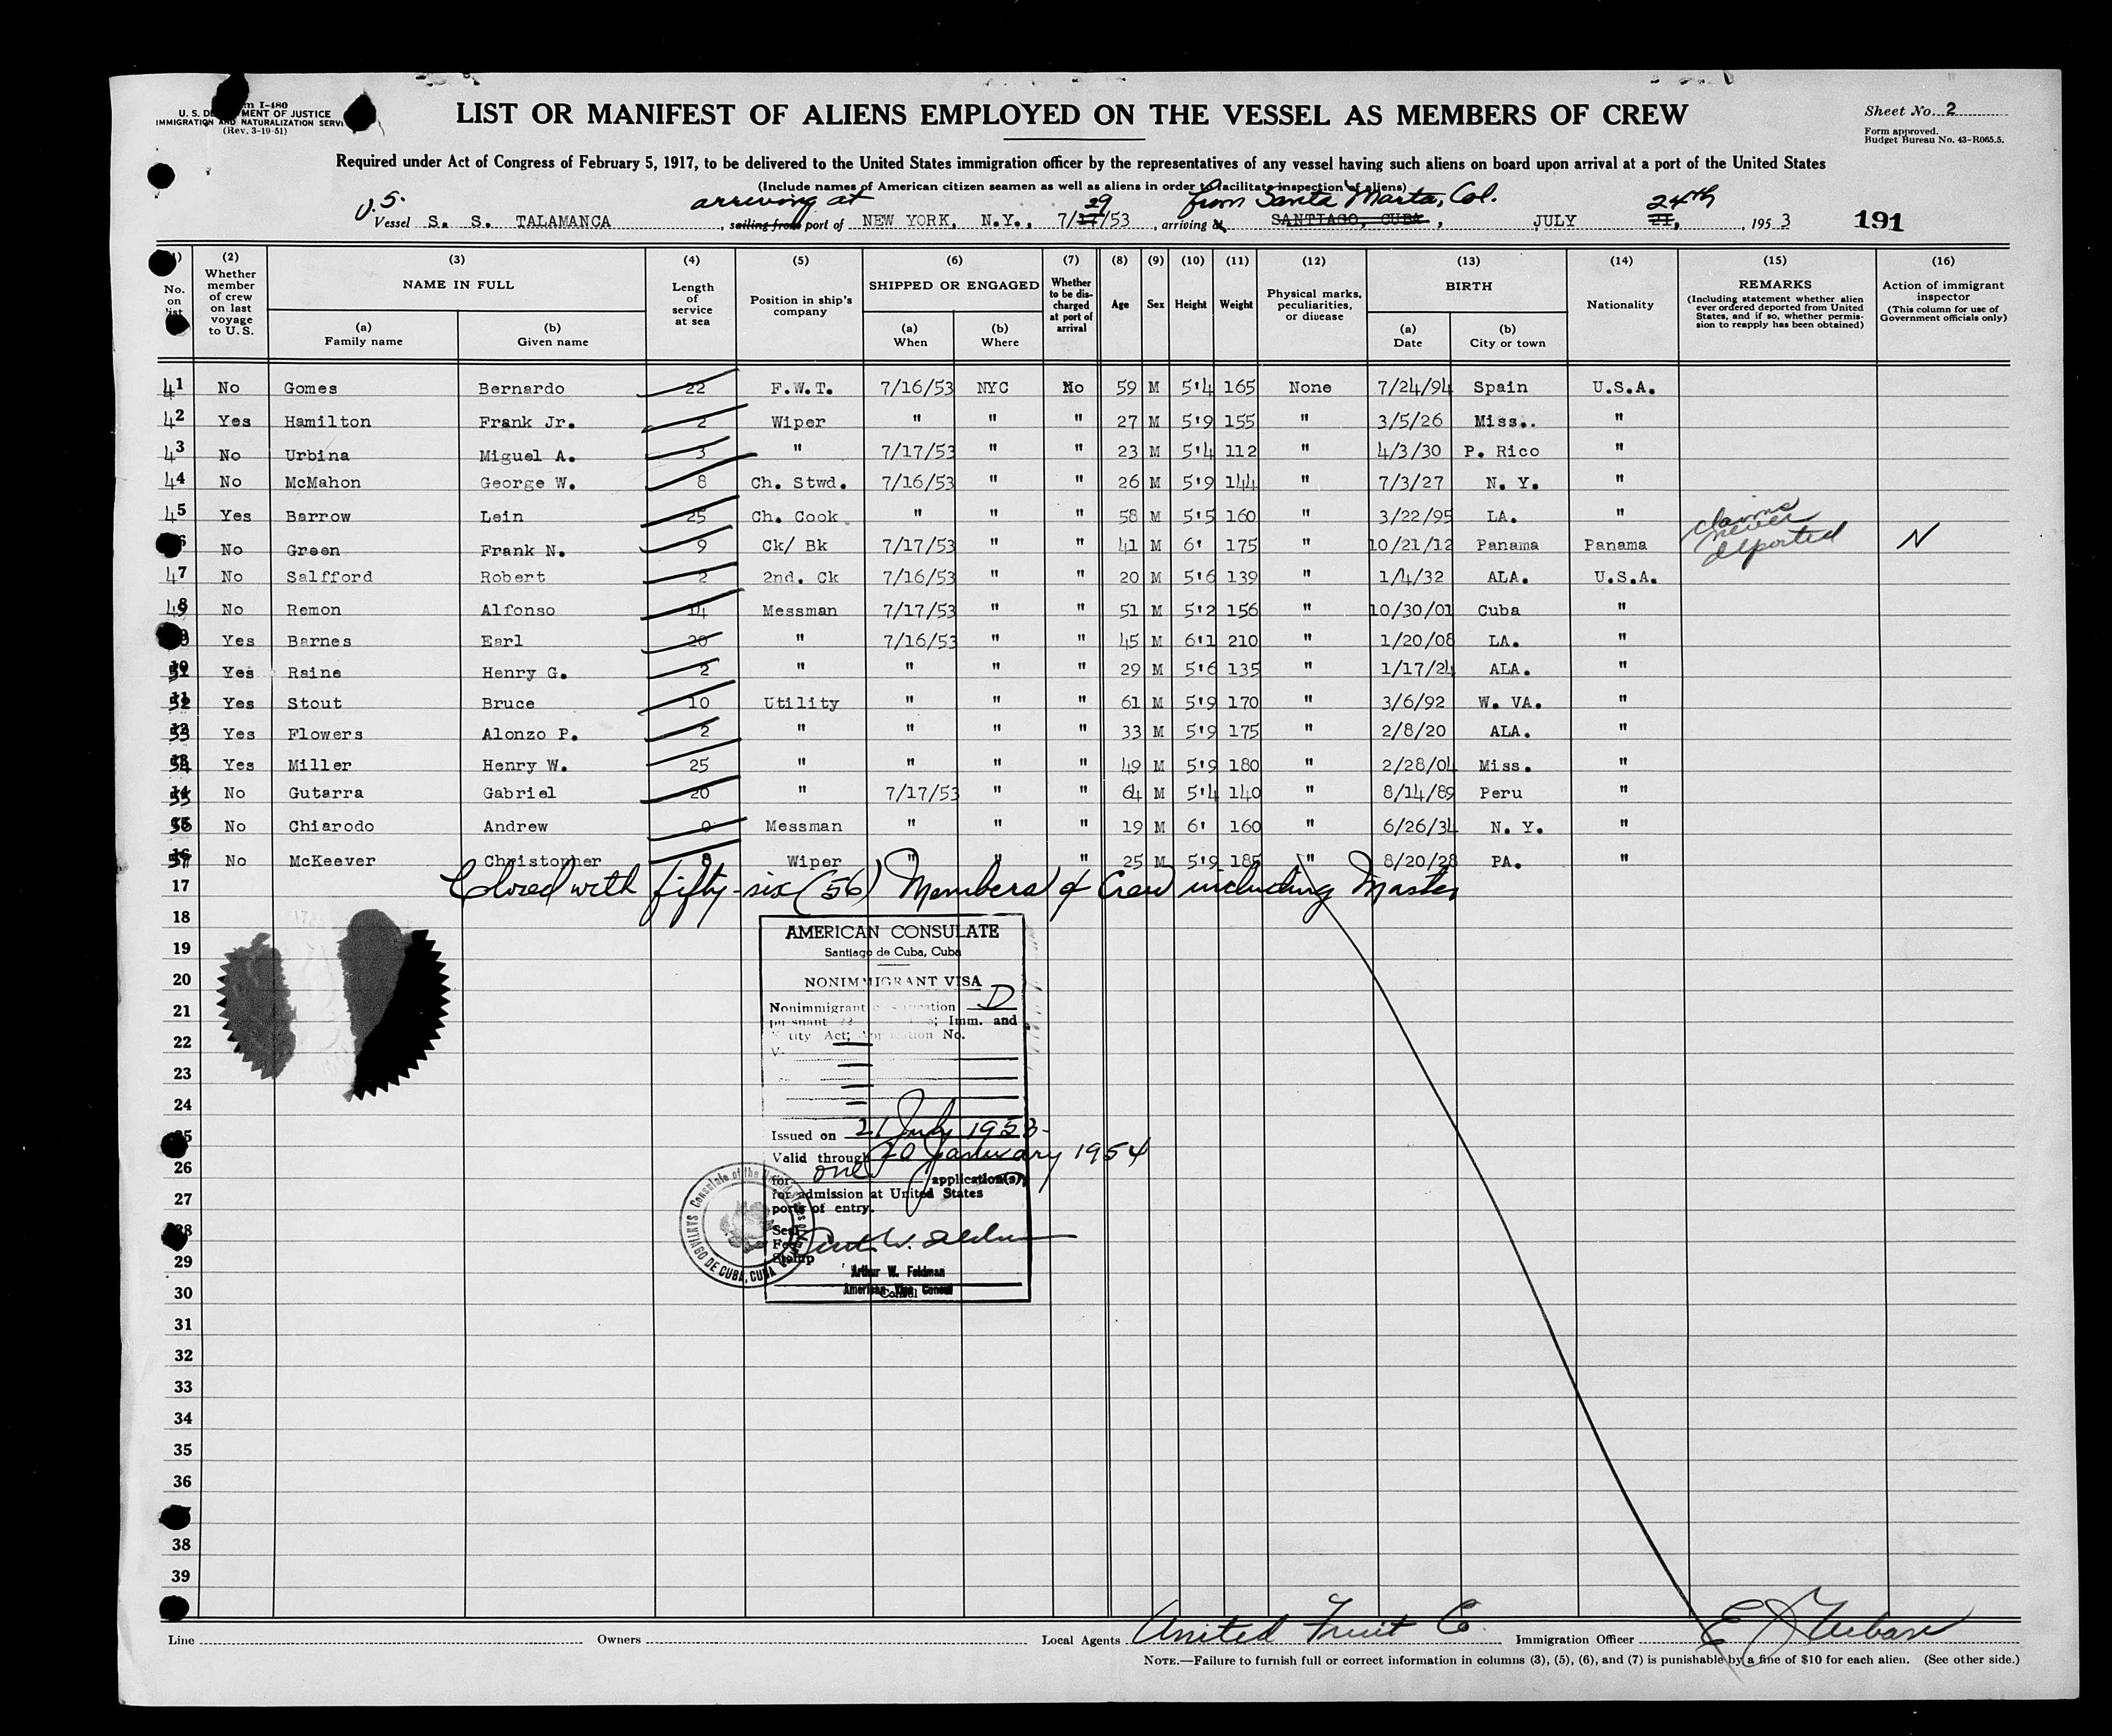 Form I-480
U. S. DEPARTMENT OF JUSTICE
IMMIGRATION AND NATURALIZATION SERVICE
(Rev. 3-19-51)
LIST OR MANIFEST OF ALIENS EMPLOYED ON THE VESSEL AS MEMBERS OF CREW
Sheet No. 2
Form approved.
Budget Bureau No. 43-R065.5.
Required under Act of Congress of February 5, 1917, to be delivered to the United States immigration officer by the representatives of any vessel having such aliens on board upon arrival at a port of the United States
(Include names of American citizen seamen as well as aliens in order to facilitate inspection of aliens)
U.S. arriving at 29 from Santa Marta, Col. 24th
Vessel S. S. TALAMANCA , sailing from port of NEW YORK, N.Y., 7/ /53 , arriving SANTIAGO, CUBA , JULY 21, , 195 3 191
(1) (2) (3) (4) (5) (6) (7) (8) (9) (10) (11) (12) (13) (14) (15) (16)
No. on list Whether member of crew on last voyage to U. S. NAME IN FULL Length of service at sea Position in ship's company SHIPPED OR ENGAGED Whether to be discharged at port of arrival Age Sex Height Weight Physical marks, peculiarities, or disease BIRTH Nationality REMARKS (Including statement whether alien ever ordered deported from United States, and if so, whether permission to reapply has been obtained) Action of immigrant inspector (This column for use of Government officials only)
(a) Family name (b) Given name (a) When (b) Where (a) Date (b) City or town
41 No Gomes Bernardo 22 F.W.T. 7/16/53 NYC No 59 M 5'4 165 None 7/24/94 Spain U.S.A.
42 Yes Hamilton Frank Jr. 2 Wiper " " " 27 M 5'9 155 " 3/5/26 Miss.. "
43 No Urbina Miguel A. 3 " 7/17/53 " " 23 M 5'4 112 " 4/3/30 P. Rico "
44 No McMahon George W. 8 Ch. Stwd. 7/16/53 " " 26 M 5'9 144 " 7/3/27 N. Y. "
45 Yes Barrow Lein 25 Ch. Cook " " " 58 M 5'5 160 " 3/22/95 LA. "
6 No Green Frank N. 9 Ck/ Bk 7/17/53 " " 41 M 6' 175 " 10/21/12 Panama Panama claims never deported N
47 No Salfford Robert 2 2nd. Ck 7/16/53 " " 20 M 5'6 139 " 1/4/32 ALA. U.S.A.
48 No Remon Alfonso 14 Messman 7/17/53 " " 51 M 5'2 156 " 10/30/01 Cuba "
Yes Barnes Earl 20 " 7/16/53 " " 45 M 6'1 210 " 1/20/08 LA. "
51 Yes Raine Henry G. 2 " " " " 29 M 5'6 135 " 1/17/24 ALA. "
52 Yes Stout Bruce 10 Utility " " " 61 M 5'9 170 " 3/6/92 W. VA. "
53 Yes Flowers Alonzo P. 2 " " " " 33 M 5'9 175 " 2/8/20 ALA. "
54 Yes Miller Henry W. 25 " " " " 49 M 5'9 180 " 2/28/04 Miss. "
55 No Gutarra Gabriel 20 " 7/17/53 " " 64 M 5'4 140 " 8/14/89 Peru "
56 No Chiarodo Andrew 0 Messman " " " 19 M 6' 160 " 6/26/34 N. Y. "
57 No McKeever Christopher Wiper " " " 25 M 5'9 185 " 8/20/28 PA. "
17 Closed with fifty-six (56) Members of Crew including Master
18
AMERICAN CONSULATE
19
Santiago de Cuba, Cuba
20
NONIMMIGRANT VISA
21
Nonimmigrant D
Imm. and
22
Act; No.
23
24
25
Issued on 21 July 1953
Valid through 20 January 1954
26
for one application(s)
27
for admission at United States
ports of entry.
28
Seal
Fee
Stamp
29
Arthur W. Feldman
30
American Vice Consul
Consul
Consulate of the United States of
SANTIAGO DE CUBA, CUBA
31
32
33
34
35
36
38
39
Line Owners Local Agents United Fruit Co. Immigration Officer
NOTE.—Failure to furnish full or correct information in columns (3), (5), (6), and (7) is punishable by a fine of $10 for each alien. (See other side.)